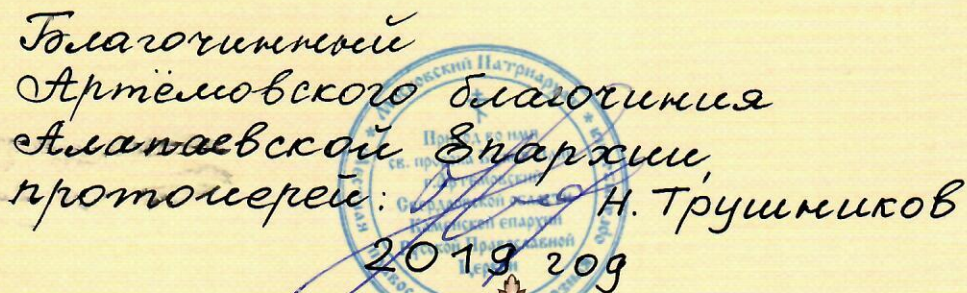 Благочинный
Артёмовского благочиния
Алапаевской Епархии,
протоиерей: Н. Трушников
2019 год
Московский Патриархат
Приход во имя
св. пророка
г. Артемовский
Свердловской области
Каменской епархии
Русской Православной
Церкви